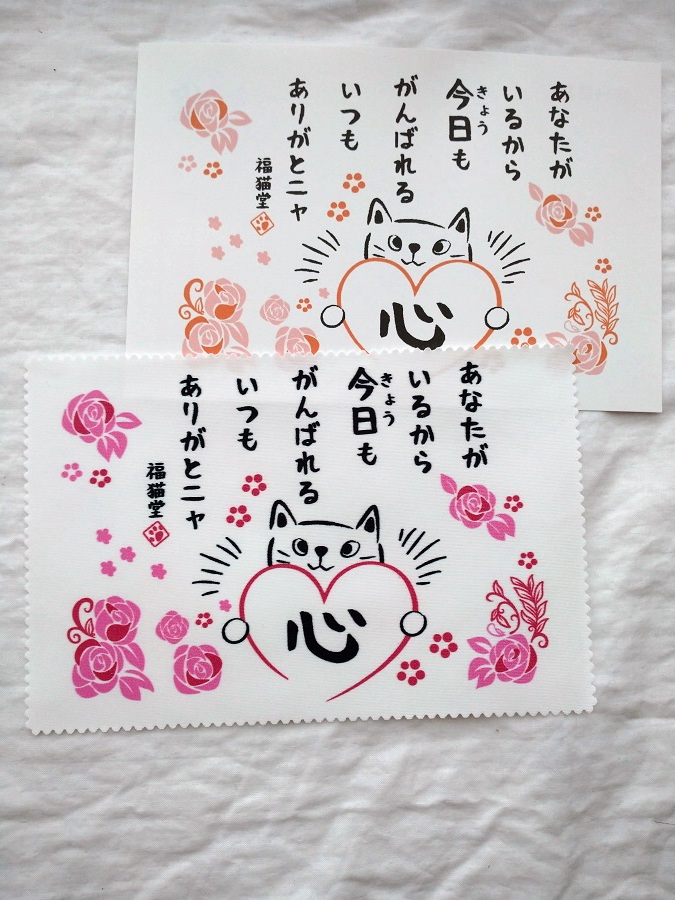 あなたが
いるから
今日も
きょう
がんばれる
いつも
ありがとニャ
福猫堂
心
あなたが
いるから
今日も
きょう
がんばれる
いつも
ありがとニャ
福猫堂
心